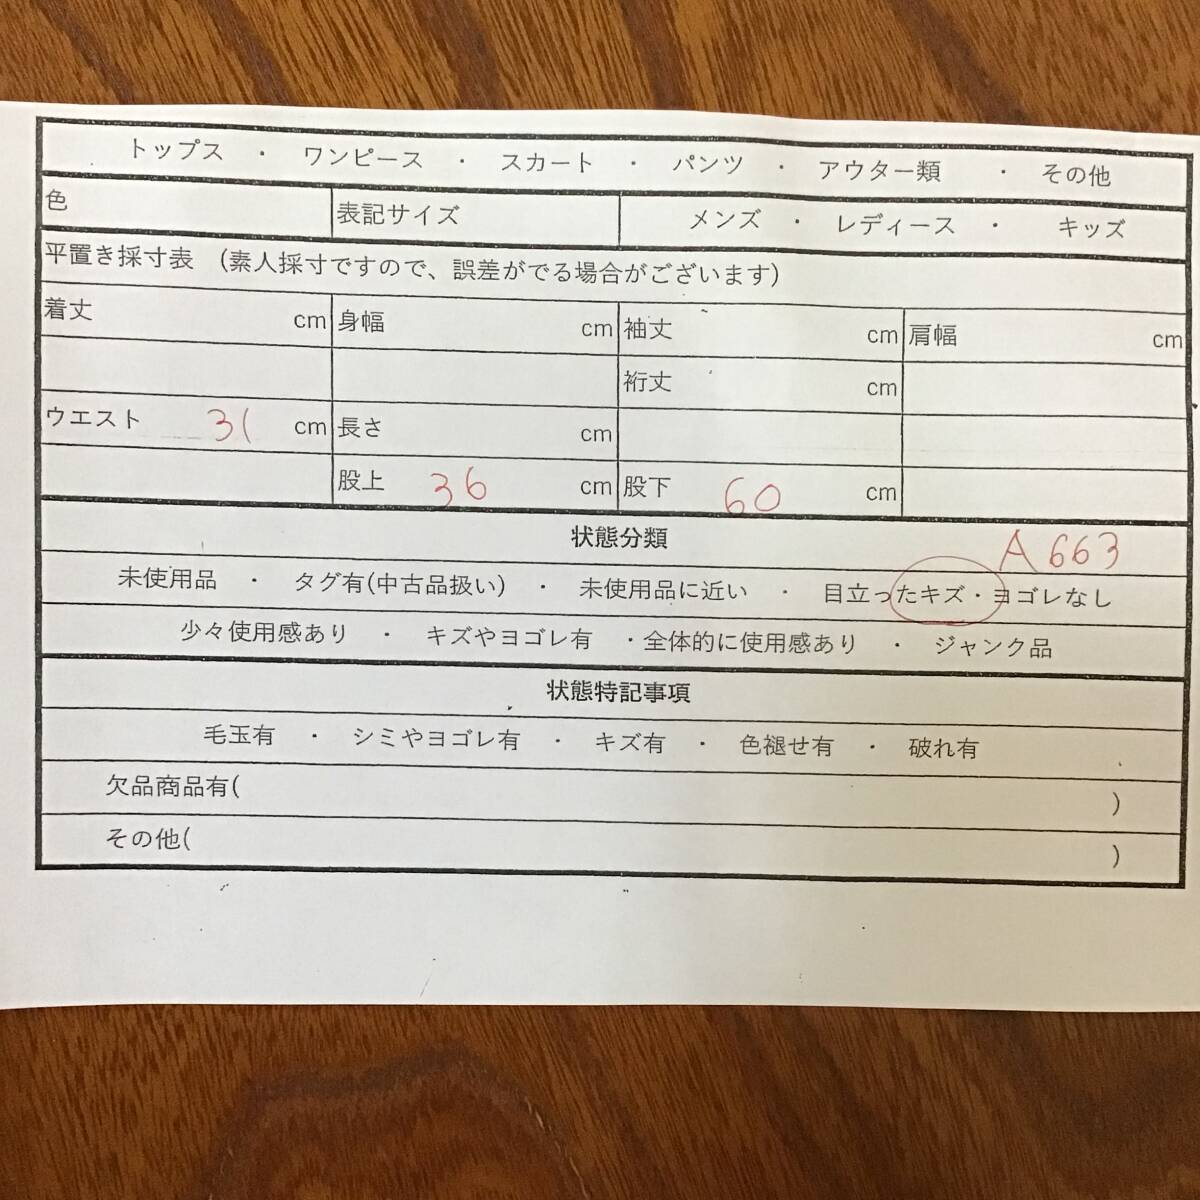 トップス ・ ワンピース ・ スカート ・ パンツ ・ アウター類 ・ その他
色 表記サイズ メンズ ・ レディース ・ キッズ
平置き採寸表 (素人採寸ですので、誤差がでる場合がございます)
着丈 cm 身幅 cm 袖丈 cm 肩幅 cm
裄丈 cm
ウエスト 31 cm 長さ cm
股上 36 cm 股下 60 cm
状態分類 A663
未使用品 ・ タグ有(中古品扱い) ・ 未使用品に近い ・ 目立ったキズ・ヨゴレなし
少々使用感あり ・ キズやヨゴレ有 ・全体的に使用感あり ・ ジャンク品
状態特記事項
毛玉有 ・ シミやヨゴレ有 ・ キズ有 ・ 色褪せ有 ・ 破れ有
欠品商品有( )
その他( )